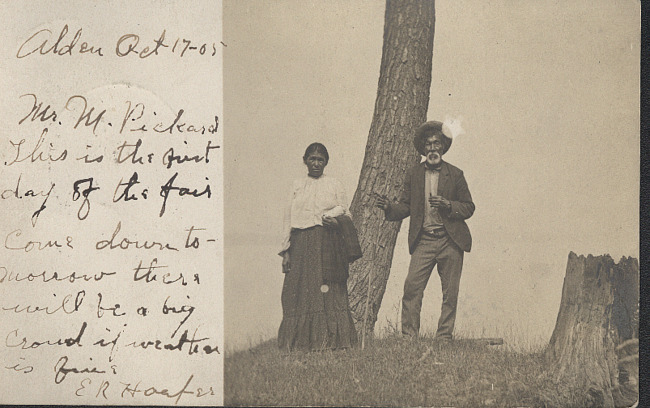 Alden Oct 17-05
Mr. M. Pickard
This is the first
day of the fair
Come down to-
morrow there
will be a big
crowd if weather
is fine
E R Hoafer